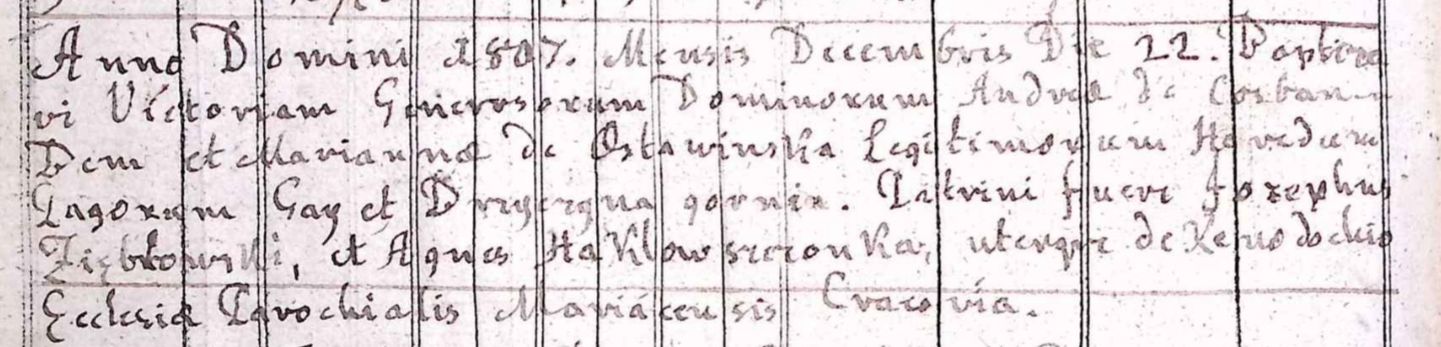 Anno Domini 1807. Mensis Decembris Die 22. Baptiza
vi Victoriam Generosorum Dominorum Andreæ de
et Mariannæ de Ostawinska Legitimorum Heredum
Pagorum Gay et gornia. Patrini fuere Josephus
et Agnes uterque de Xenodochio
Ecclesiæ Parochialis Mariacensis Cracovia.